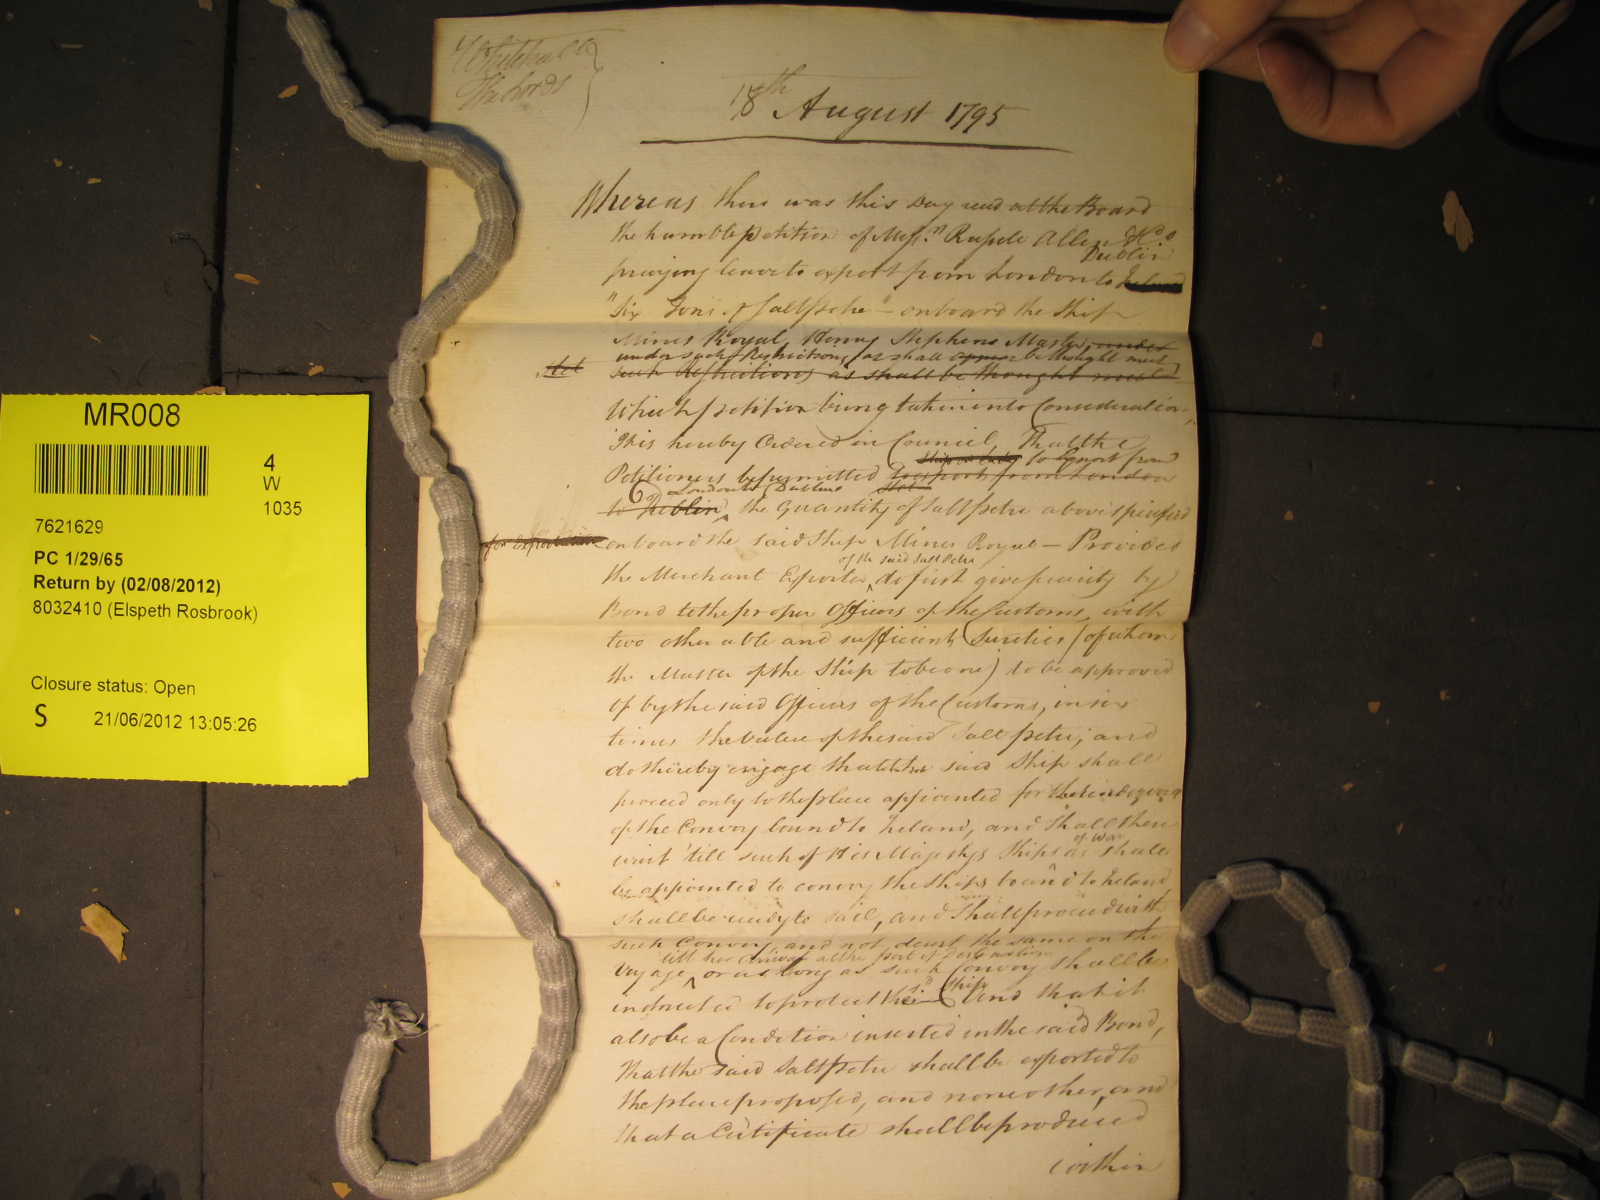 MR008
4
W
1035
7621629
PC 1/29/65
Return by (02/08/2012)
8032410 (Elspeth Rosbrook)
Closure status: Open
S 21/06/2012 13:05:26
Whitehall
The Lords
18th August 1795
Whereas there was this Day read at the Board
the humble petition of Messrs. Allen & Co.
Dublin
praying leave to export from London to Ireland
"Six Tons of Saltpetre" - onboard the Ship
Mines Royal, Henry Stephens Master, under
under such Restrictions, as shall be thought meet
stet such Restrictions as shall be thought meet
Which petition being taken into Consideration,
This hereby Ordered in Council, That the
to Export from
Petitioners be permitted to export from London
London to Dublin stet
to Dublin, the Quantity of Saltpetre above specified
for Exportation onboard the said Ship Mines Royal - Provided
of the said Salt Petre
the Merchant Exporter, do first give security by
Bond to the proper Officers of the Customs, with
two other able and sufficient Sureties (of whom
the Master of the Ship to be one) to be approved
of by the said Officers of the Customs, in six
times the value of the said Salt petre; and
do thereby engage that the said Ship shall
proceed only to the place appointed for the rendezvous
of the Convoy bound to Ireland, and shall there
of War
wait 'till such of His Majestys Ships as shall
be appointed to convoy the Ships bound to Ireland
shall be ready to sail, and shall proceed with
such Convoy, and not desert the same on the
till her arrival at the port of Destination
Voyage, or as long as such Convoy shall be
sd. Ship
instructed to protect their and that it
also be a Condition inserted in the said Bond,
That the said Saltpetre shall be exported to
the place proposed, and none other, and
that a Certificate shall be produced
within